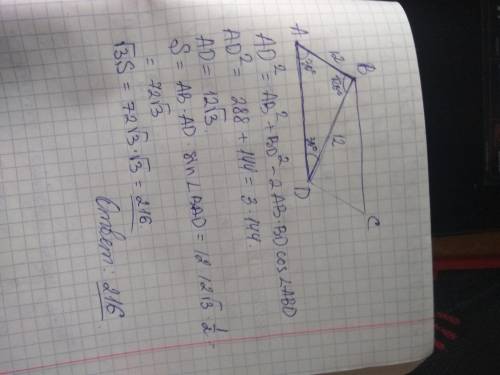 A
12
B
30°
120°
12
30°
D
C
AD² = AB² + BD² - 2AB·BD cos∠ABD
AD² = 288 + 144 = 3·144.
AD = 12√3.
S = AB·AD·sin∠BAD = 12·12√3·1/2 =
= 72√3
√3S = 72√3·√3 = 216
Ответ: 216.